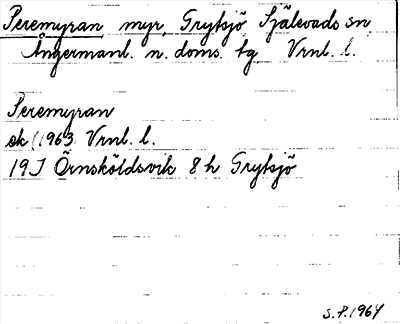 Peremyran myr, Grytsjö Själevads sn
Ångermanl. n. doms. tg Vrnl. l.
Peremyran
ek (1963) Vrnl. l.
19J Örnsköldsvik 8 h Grytsjö
S.P. 1964